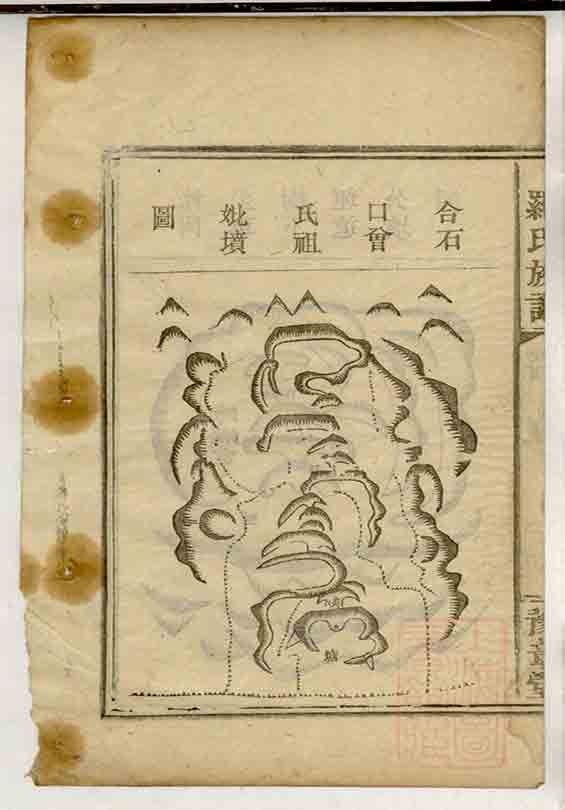 合石
口會
氏祖
妣墳
圖
羅氏族譜
豫章堂